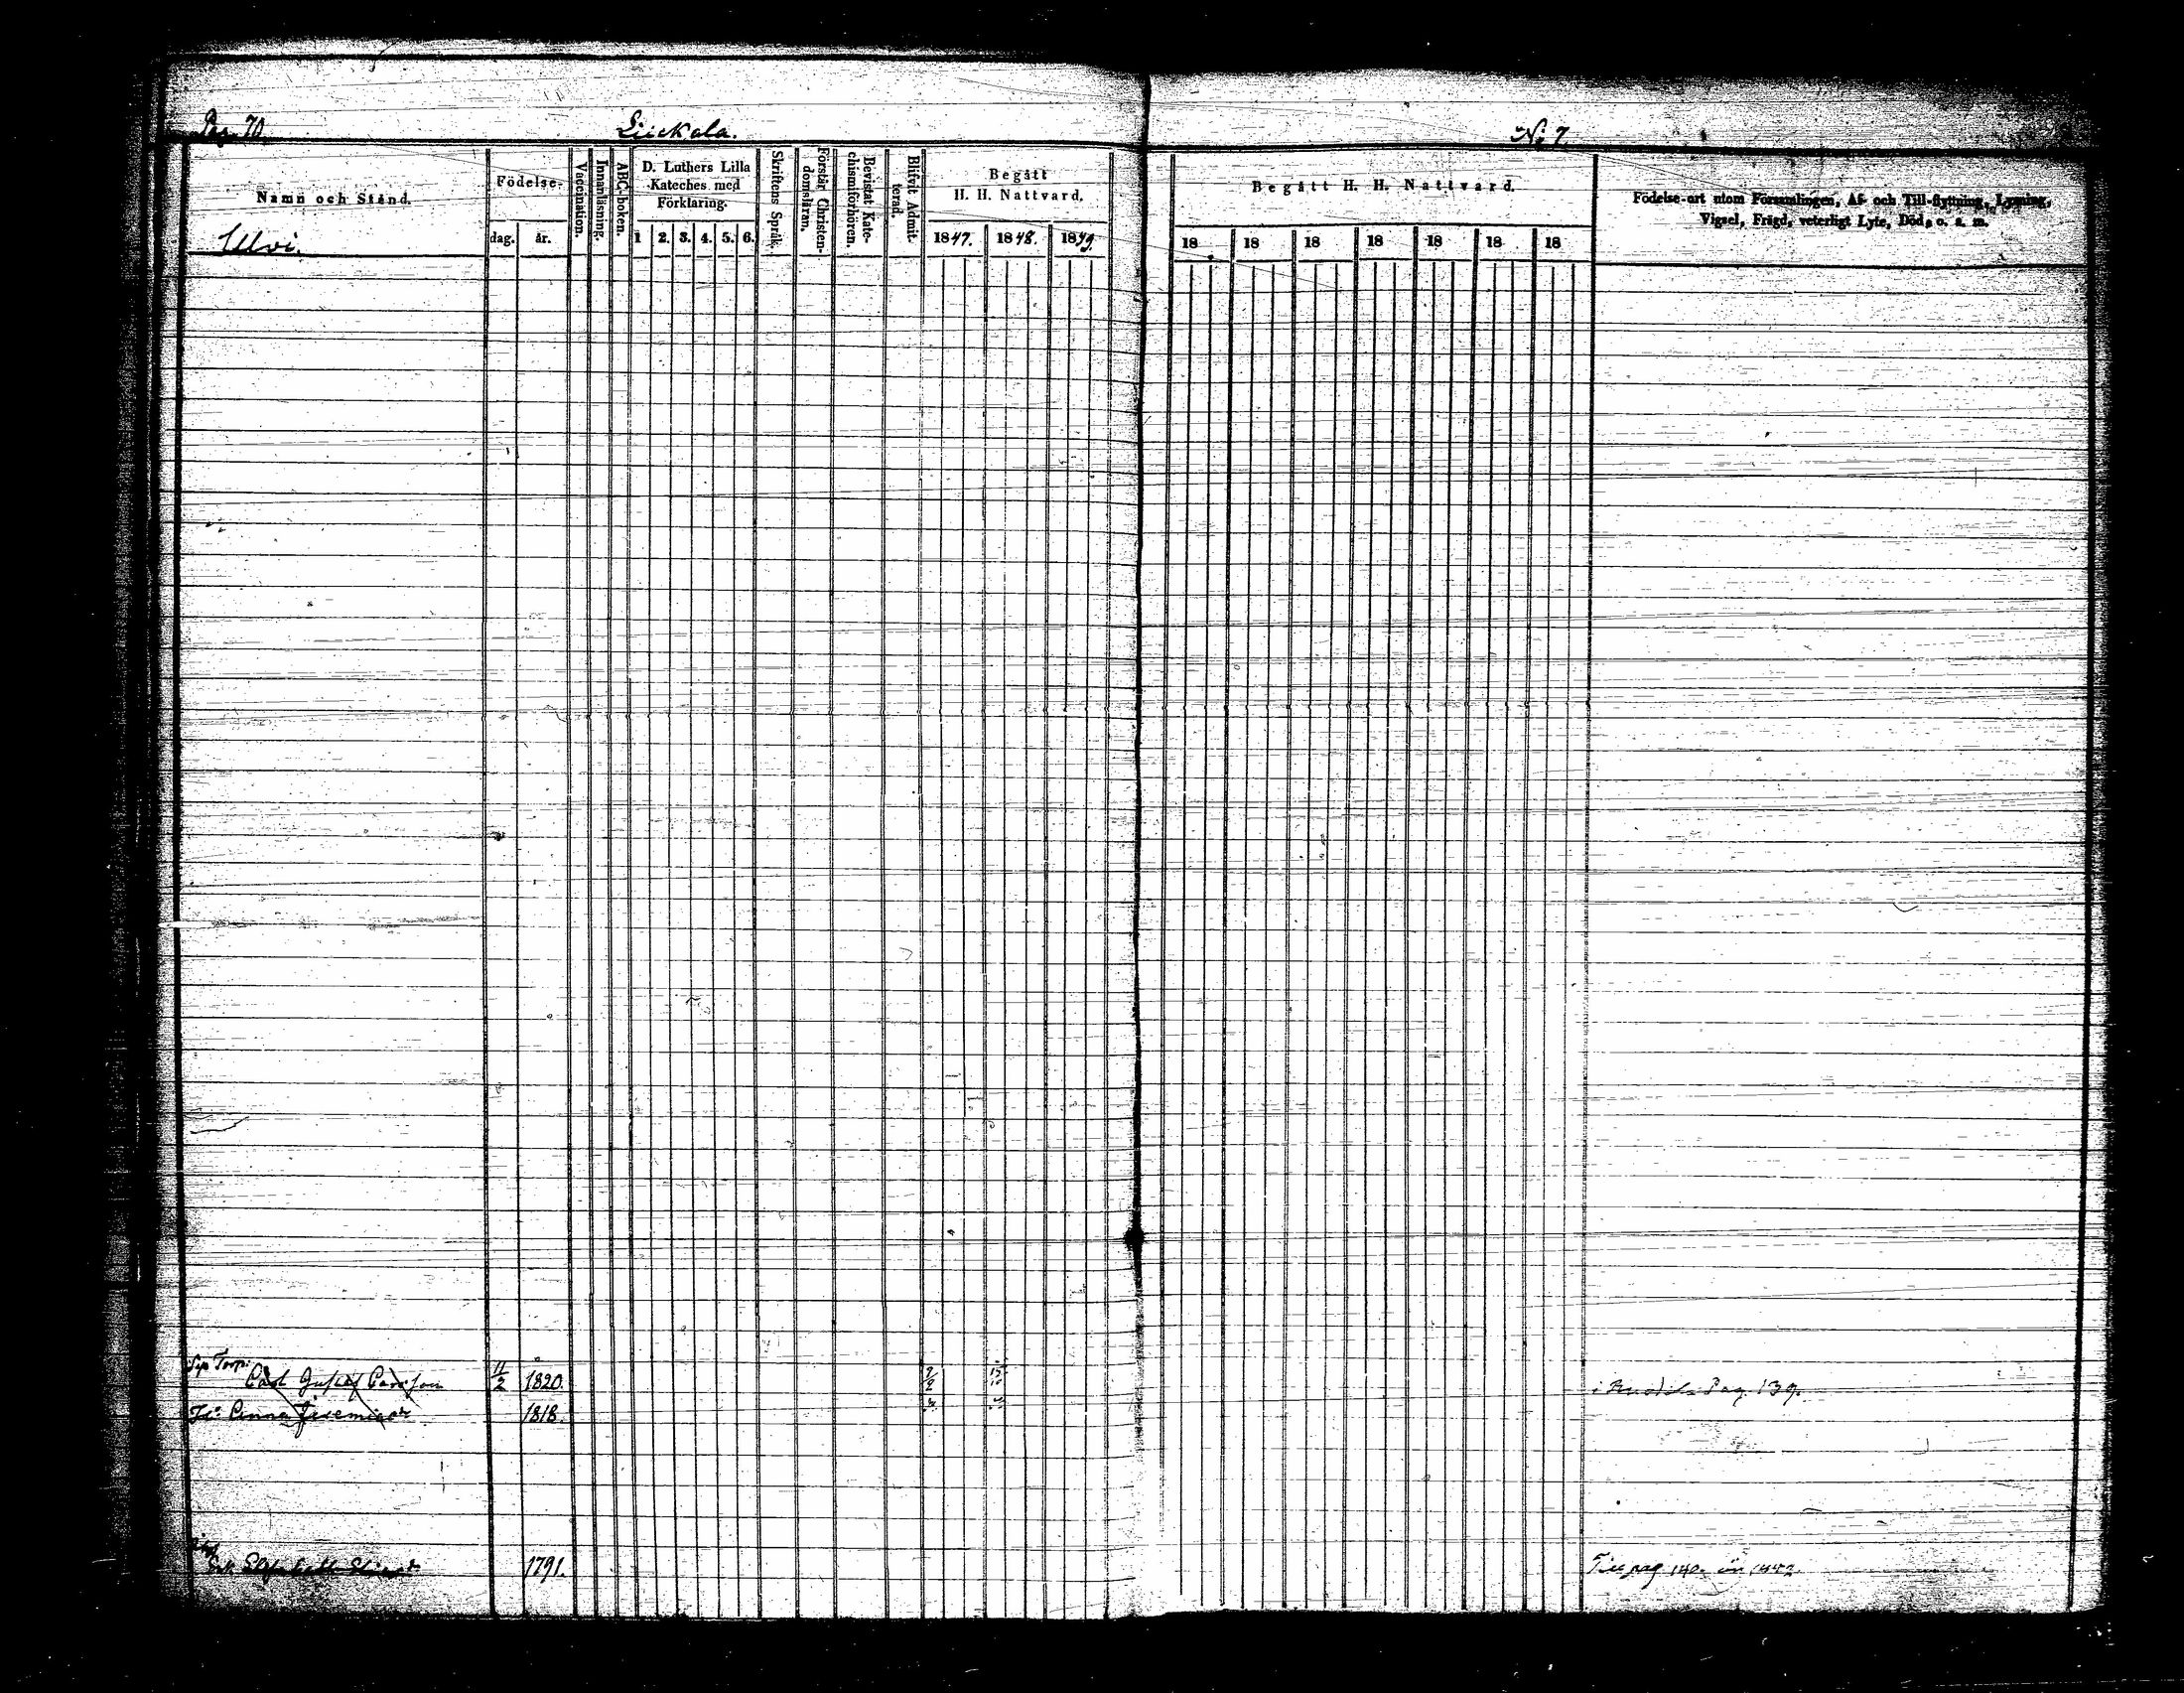 Pag. 70 Liickala. N:o 7.
Namn och Stånd.
Ulvi.
Födelse-
dag. år.
Vaccination.
Innanläsning.
ABC-boken.
D. Luthers Lilla
Kateches med
Förklaring.
1 2. 3. 4. 5. 6.
Skriftens Språk.
Förstår Christen-
domsläran.
Bevistat Kate-
chismiförhören.
Blifvit Admit-
terad.
Begått
H. H. Nattvard.
1847. 1848. 1849.
Begått H. H. Nattvard.
18 18 18 18 18 18 18
Födelse-ort utom Församlingen, Af- och Till-flyttning, Lysning,
Vigsel, Frägd, veterligt Lyte, Död, o. s. m.
Torp:
Carl Gustaf Carlsson 11/2 1820. i Pag. 139.
Anna Jeremiædr 1818.
1791. Till pag 140